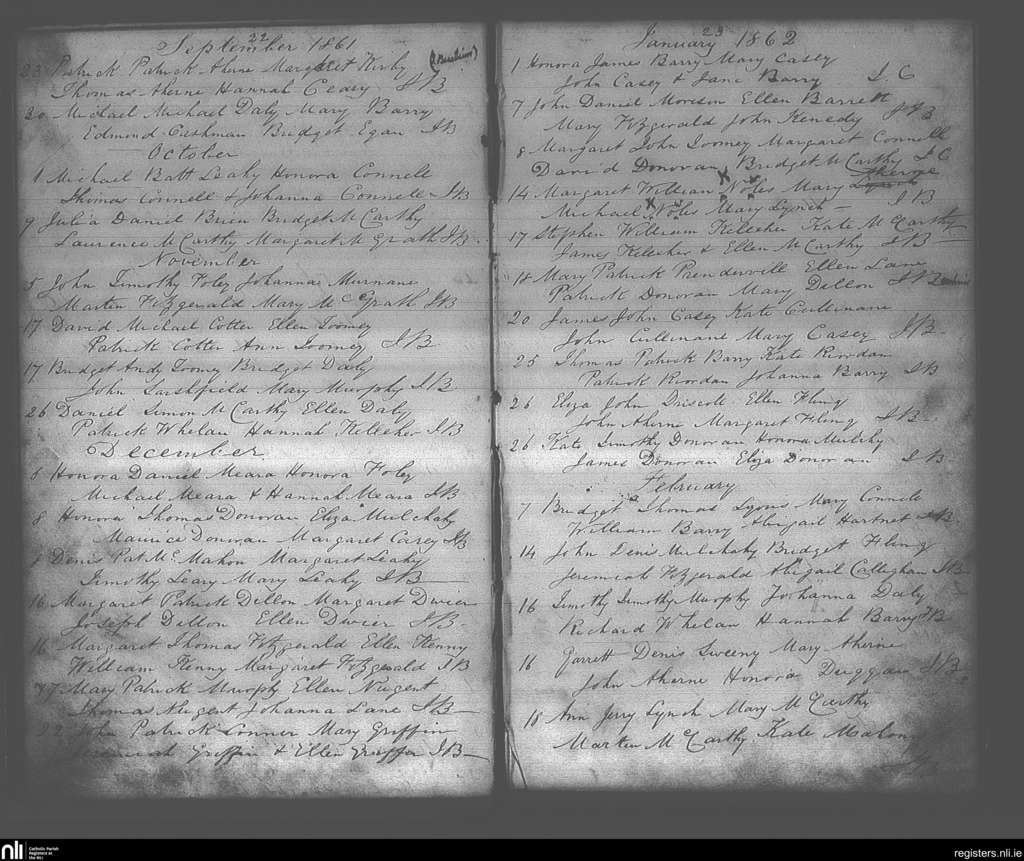 22
September 1861
23 Patrick Patrick Aherne Margaret Kirby
Thomas Aherne Hannah Geary J B
30 Michael Michael Daly Mary Barry
Edmond Cashman Bridget Egan J B
October
1 Michael Batt Leahy Honora Connele
Thomas Connell & Johanna Connele J B
9 Julia Daniel Brien Bridget McCarthy
Laurence McCarthy Margaret McGrath J B
November
5 John Timothy Foley Johanna Murnane
Marten Fitzgerald Mary McGrath J B
17 David Michael Cotter Ellen Toomey
Patrick Cotter Ann Toomey J B
17 Bridget Andy Toomy Bridget Daly
John Sarshfield Mary Murphy J B
26 Daniel Simon McCarthy Ellen Daly
Patrick Whelan Hannah Kelleher J B
December
8 Honora Daniel Meara Honora Foley
Michael Meara & Hannah Meara J B
8 Honora Thomas Donovan Eliza Mulchahy
Maurice Donovan Margaret Carey J B
Denis Pat McMahon Margaret Leahy
Timothy Leary Mary Leahy J B
16 Margaret Patrick Dillon Margaret Dwier
Joseph Dillon Ellen Dwier J B
16 Margaret Thomas Fitzgerald Ellen Kenny
William Kenny Margaret Fitzgerald J B
Mary Patrick Murphy Ellen Nugent
Thomas Nugent Johanna Lane J B
22 John Patrick Connor Mary Griffin
Jeremiah Griffin & Ellen Griffin J B
23
January 1862
1 Honora James Barry Mary Casey
John Casey & Jane Barry J. C
7 John Daniel Morison Ellen Barrett
Mary Fitzgerald John Kenedy J B
8 Margaret John Toomey Margaret Connell
David Donovan Bridget McCarthy J C
Aherne
14 Margaret William Noles Mary Lynch
Michael Noles Mary Lynch J B
17 Stephen William Kelleher Kate McCarthy
James Kelleher & Ellen McCarthy J B
18 Mary Patrick Prendervill Ellen Lane
Patrick Donovan Mary Dellon J B
20 James John Casey Kate Cullinane
John Cullinane Mary Casey J B
25 Thomas Patrick Barry Kate Riordan
Patrick Riordan Johanna Barry J B
26 Eliza John Driscole Ellen Fling
John Aherne Margaret Fling J B
26 Kate Timothy Donovan Honora Mulchy
James Donovan Eliza Donovan J B
February
7 Bridget Thomas Lyons Mary Connele
William Barry Abigail Hartnet J B
14 John Denis Mulchahy Bridget Fling
Jeremiah Fitzgerald Abigail Callighan J B
16 Timothy Timothy Murphy Johanna Daly
Richard Whelan Hannah Barry J B
16 Garrett Denis Sweeny Mary Aherne
John Aherne Honora Duggan J B
18 Ann Jerry Lynch Mary McCarthy
Marten McCarthy Kate Malony
nli
Catholic Parish
Registers at
the NLI
registers.nli.ie